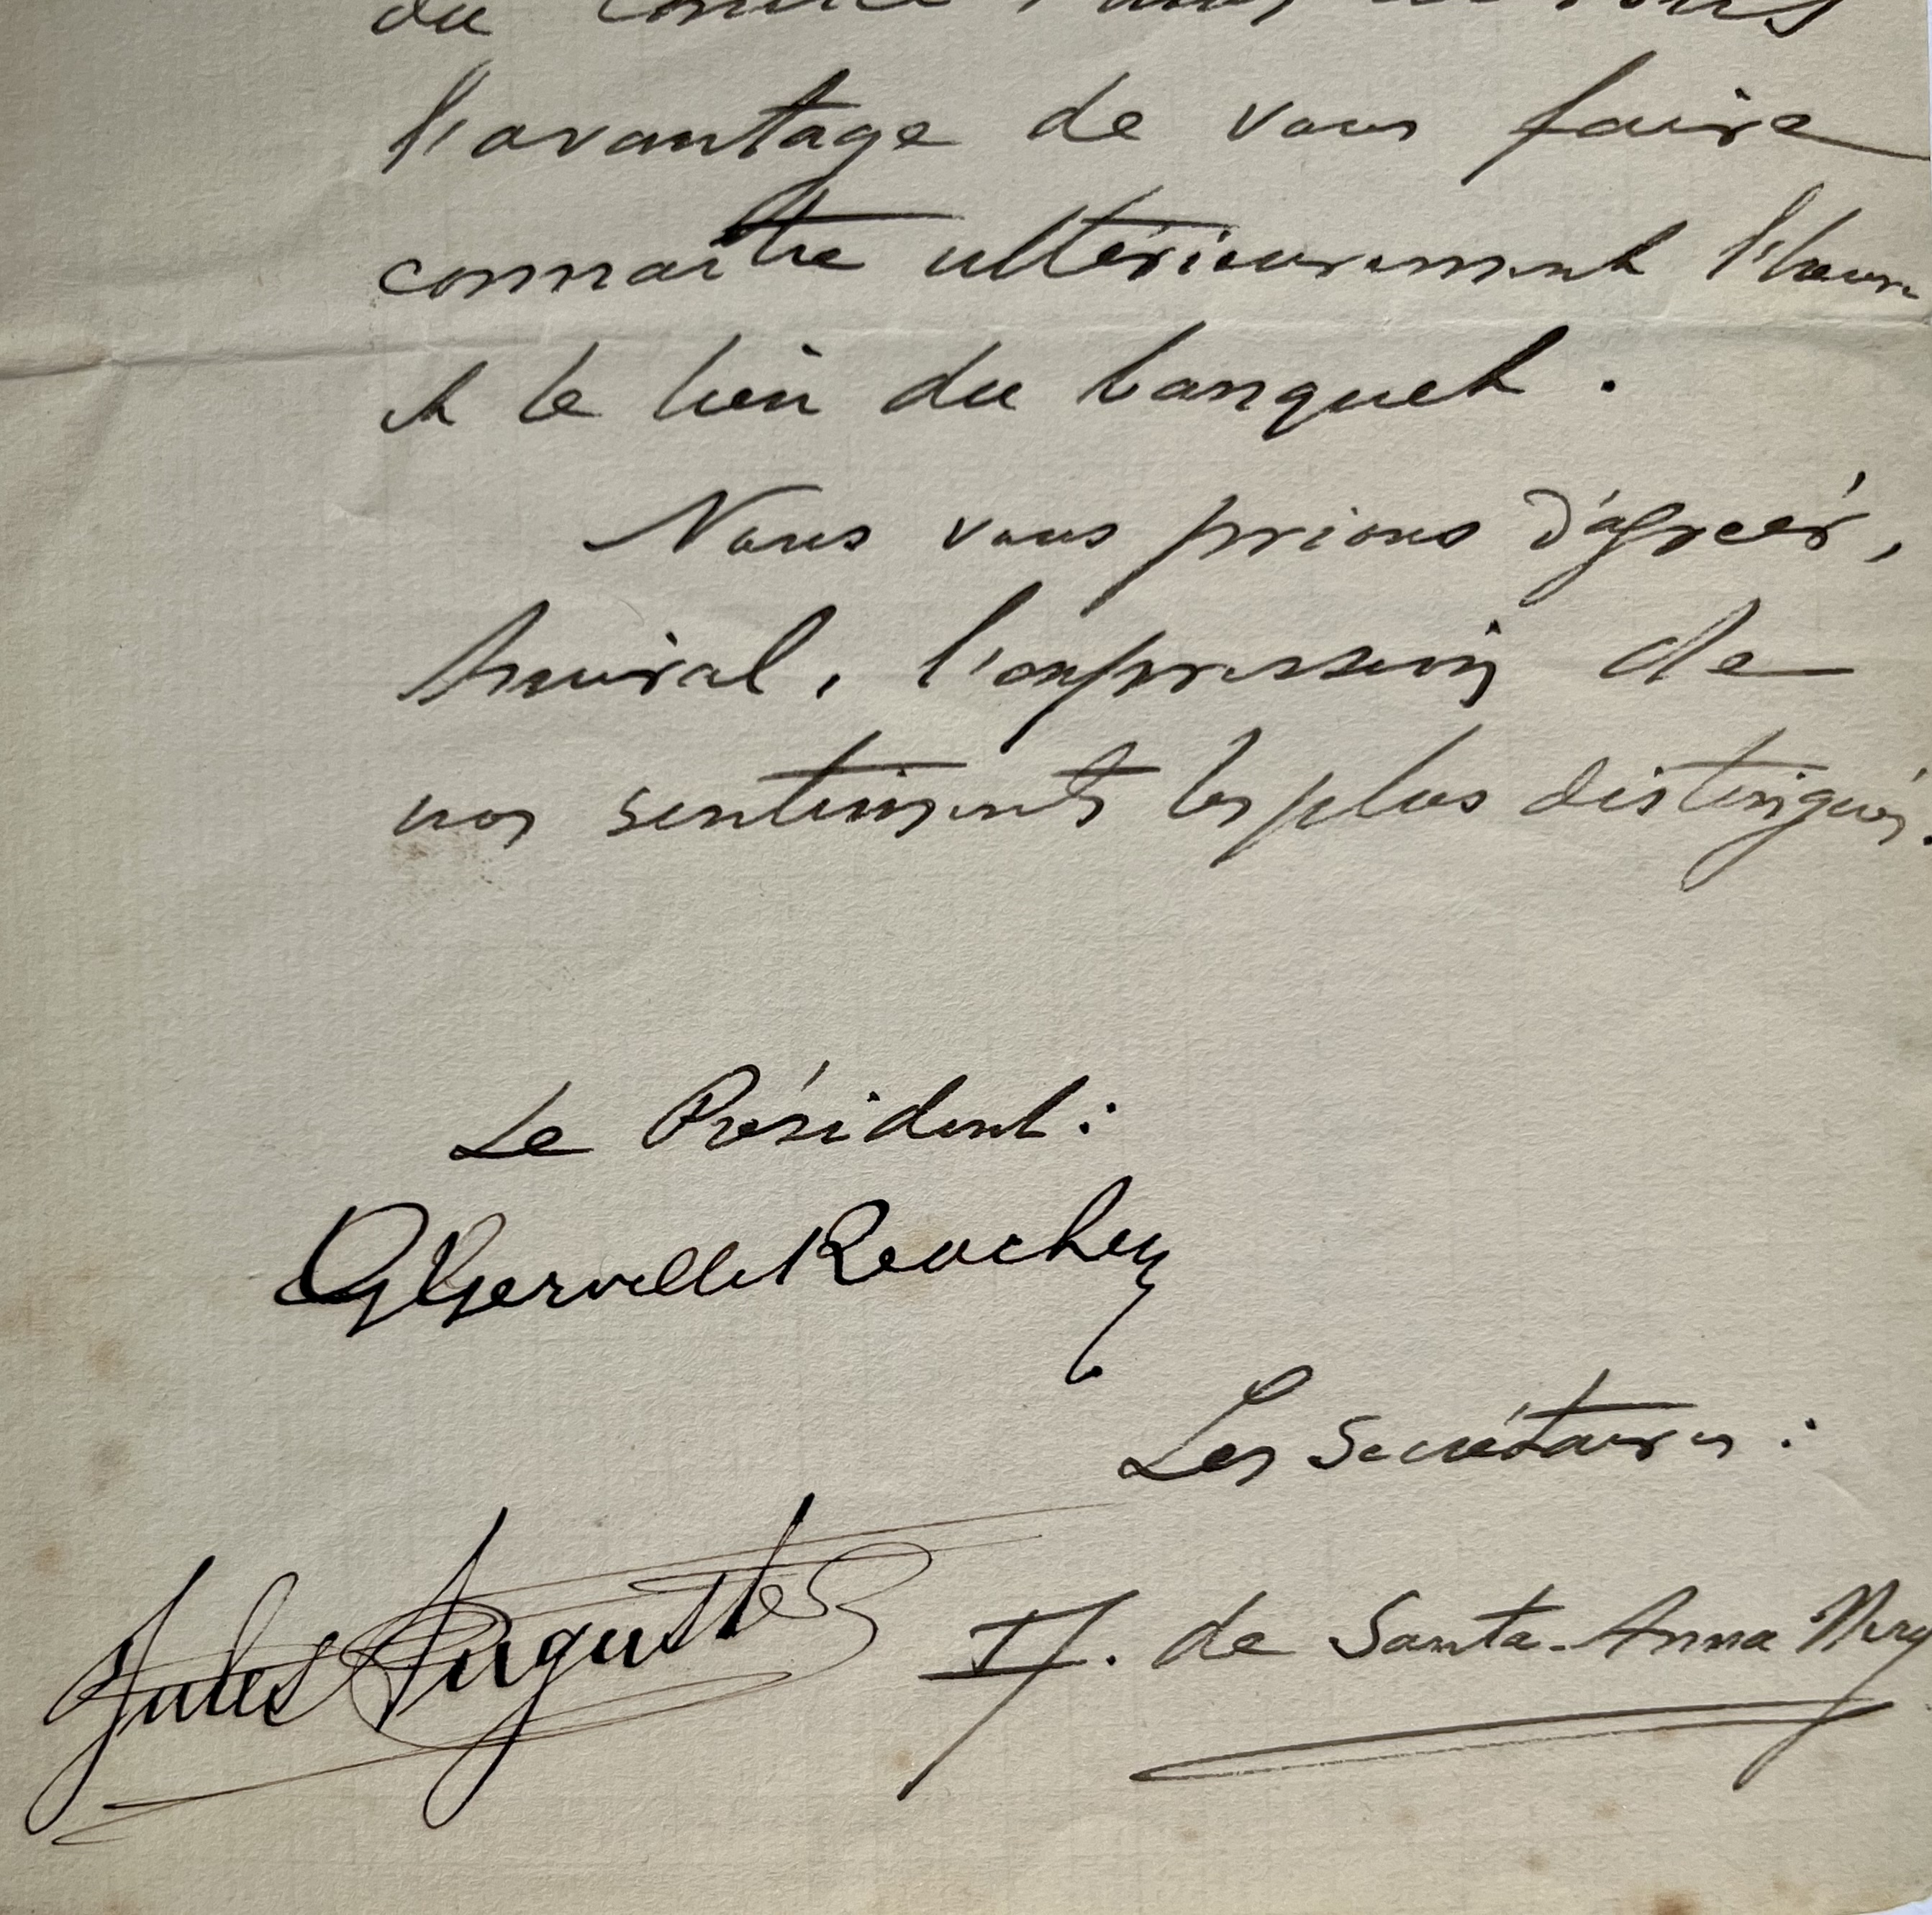 du Comité
l'avantage de vous faire
connaître ultérieurement l'heure
et le lieu du banquet.
Nous vous prions d'agréer,
Amiral, l'expression de
nos sentiments les plus distingués.
Le Président:
G Gerville Réache
Les Secrétaires:
Jules Auguste
F. J. de Santa-Anna Nery